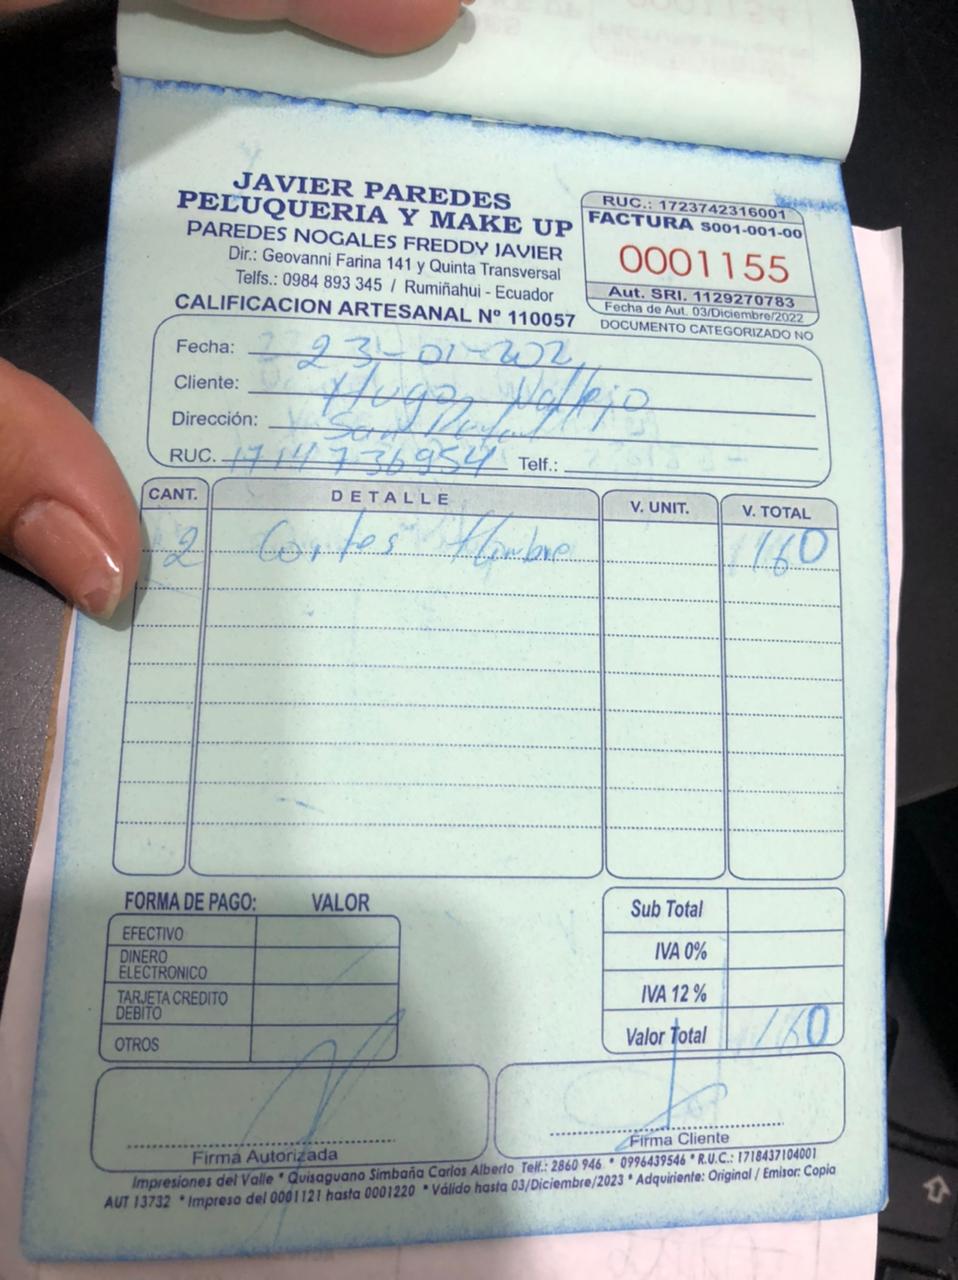 JAVIER PAREDES
PELUQUERIA Y MAKE UP
PAREDES NOGALES FREDDY JAVIER
Dir.: Geovanni Farina 141 y Quinta Transversal
Telfs.: 0984 893 345 / Rumiñahui - Ecuador
CALIFICACION ARTESANAL Nº 110057
RUC.: 1723742316001
FACTURA S001-001-00
0001155
Aut. SRI. 1129270783
Fecha de Aut. 03/Diciembre/2022
DOCUMENTO CATEGORIZADO NO
Fecha: 23-01-202
Cliente: Hugo Vallejo
Dirección: San Rafael
RUC. 1714736954 Telf.:
CANT. DETALLE V. UNIT. V. TOTAL
2 Cortes Hombre 160
FORMA DE PAGO: VALOR
EFECTIVO
DINERO ELECTRONICO
TARJETA CREDITO DEBITO
OTROS
Sub Total
IVA 0%
IVA 12 %
Valor Total 160
Firma Autorizada
Firma Cliente
Impresiones del Valle * Quisaguano Simbaña Carlos Alberto Telf.: 2860 946 * 0996439546 * R.U.C.: 1718437104001
AUT 13732 *Impreso del 0001121 hasta 0001220 * Válido hasta 03/Diciembre/2023 * Adquiriente: Original / Emisor: Copia